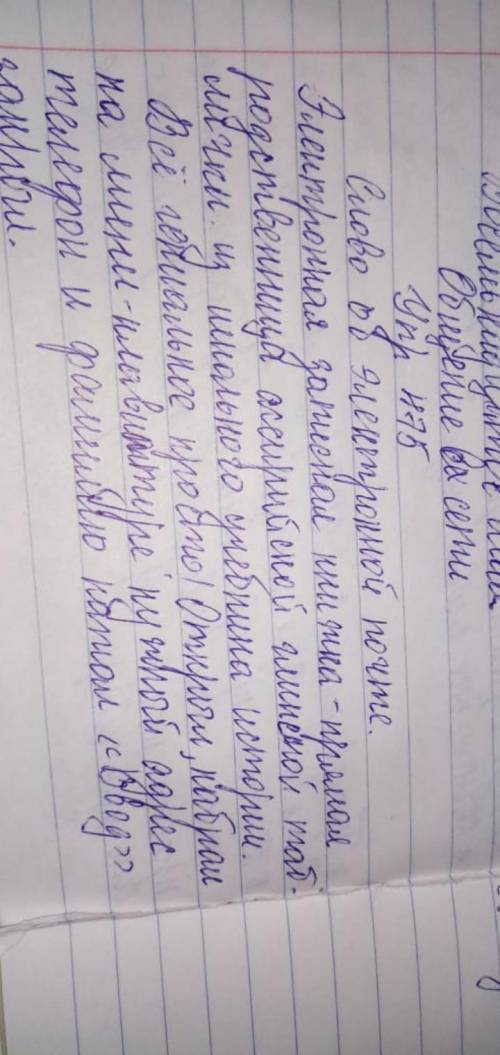 Общение в сети
Упр 475
Слово об электронной почте.
Электронная записная книжка - прямая
родственница ассирийской глиняной таб-
лички из школьного учебника истории.
Всё гениальное просто! Открыл, набрал
на мини-клавиатуре нужный адрес
телефон и фамилию нажал «Ввод»
закрыл.